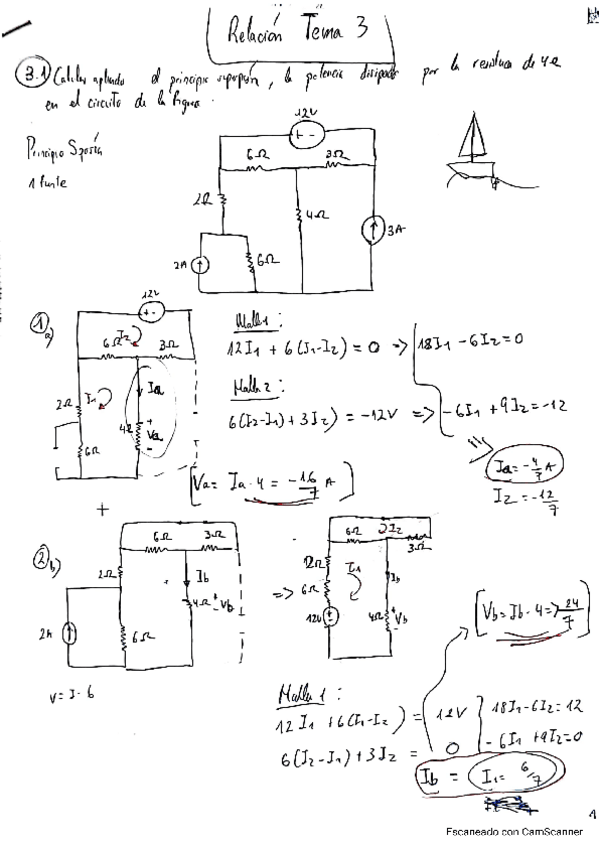 Relación Tema 3
3.1 Calcular aplicando el principio superposición, la potencia disipada por la resistencia de 4Ω
en el circuito de la figura.
Principio
1 fuente
12V
+ -
6Ω 3Ω
2Ω
4Ω
3A
2A
6Ω
1 a)
12V
+ -
6Ω I2 3Ω
2Ω I1 Ia
4Ω + Va -
6Ω
Malla 1:
12I1 + 6(I1-I2) = 0 => 18I1 - 6I2 = 0
Malla 2:
6(I2-I1) + 3I2) = -12V => -6I1 + 9I2 = -12
Ia = -4/7 A
I2 = -12/7
[Va = Ia · 4 = -16/7 A]
+
2 b)
6Ω 3Ω
2Ω Ib
4Ω + Vb -
2A
6Ω
V = I · 6
=>
6Ω I2 3Ω
2Ω I1 Ib
6Ω
12V 4Ω + Vb -
[Vb = Ib · 4 => 24/7]
Malla 1:
12I1 + 6(I1-I2) = 12V 18I1 - 6I2 = 12
6(I2-I1) + 3I2 = 0 -6I1 + 9I2 = 0
Ib = I1 = 6/7
Escaneado con CamScanner